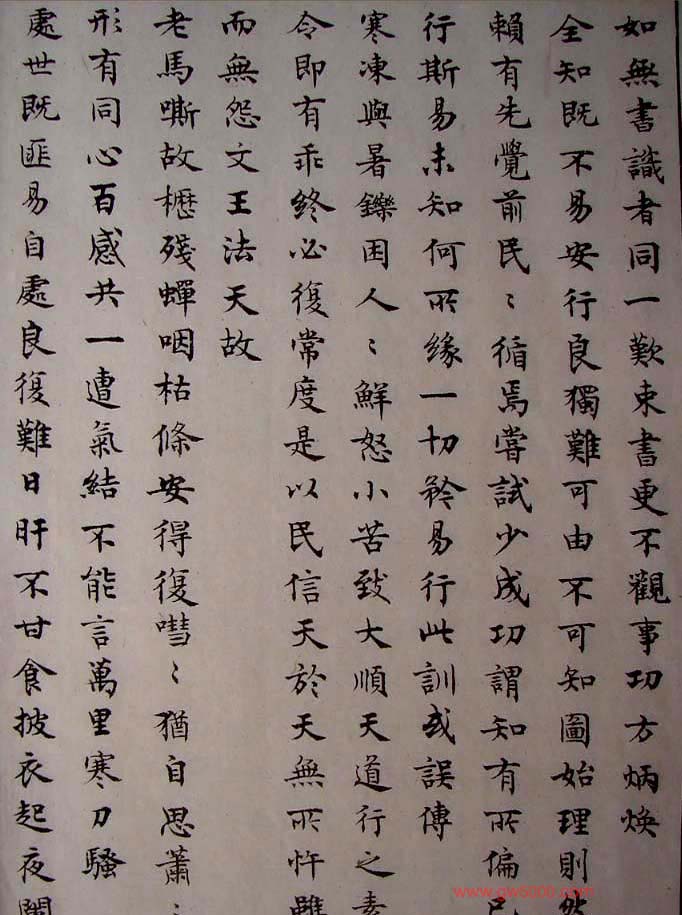 如無書識者同一歎束書更不觀事功方炳煥
全知既不易安行良獨難可由不可知圖始理則然
賴有先覺前民〻循焉嘗試少成功謂知有所偏
行斯易未知何所緣一切矜易行此訓或誤傳
寒凍與暑鑠困人〻鮮怒小苦致大順天道行之素
令即有乖終必復常度是以民信天於天無所忤雖
而無怨文王法天故
老馬嘶故櫪殘蟬咽枯條安得復嘒〻猶自思蕭〻
形有同心百感共一遭氣結不能言萬里寒刀騷
處世既匪易自處良復難日旰不甘食披衣起夜闌
www.gw5000.com